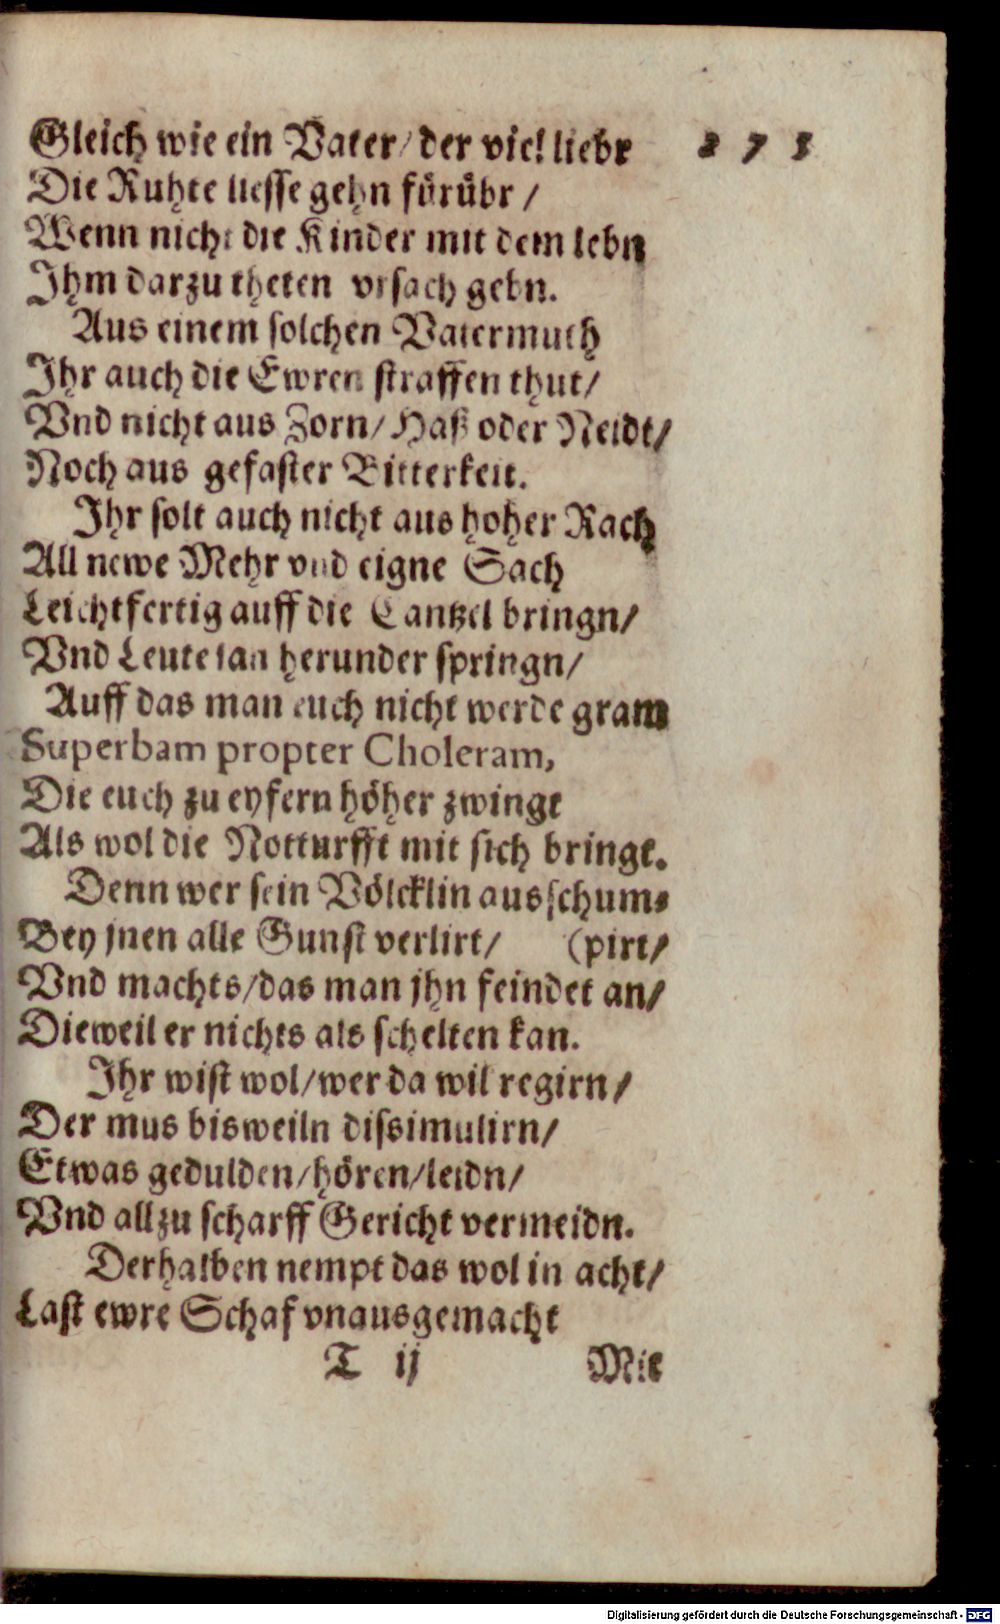 Gleich wie ein Vater/ der viel liebr 275
Die Ruhte liesse gehn fürübr /
Wenn nicht die Kinder mit dem lebn
Ihm darzu theten vrsach gebn.
Aus einem solchen Vatermuth
Ihr auch die Ewren straffen thut/
Vnd nicht aus Zorn/ Haß oder Neidt/
Noch aus gefaster Bitterkeit.
Ihr solt auch nicht aus hoher Rach
All newe Mehr vnd eigne Sach
Leichtfertig auff die Cantzel bringn/
Vnd Leute herunder springn/
Auff das man euch nicht werde gram
Superbam propter Choleram,
Die euch zu eyfern höher zwingt
Als wol die Notturfft mit sich bringt.
Denn wer sein Völcklin ausschum-
Bey jnen alle Gunst verlirt/ (pirt/
Vnd machts/das man jhn feindet an/
Dieweil er nichts als schelten kan.
Ihr wist wol/wer da wil regirn/
Der mus bisweiln dissimulirn/
Etwas gedulden/hören/leidn/
Vnd allzu scharff Gericht vermeidn.
Derhalben nempt das wol in acht/
Last ewre Schaf vnausgemacht
T ij Mit
Digitalisierung gefördert durch die Deutsche Forschungsgemeinschaft - DFG